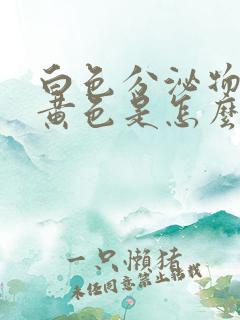 白色分泌物
黄色是怎麽
一只懒猪
未经同意禁止转载